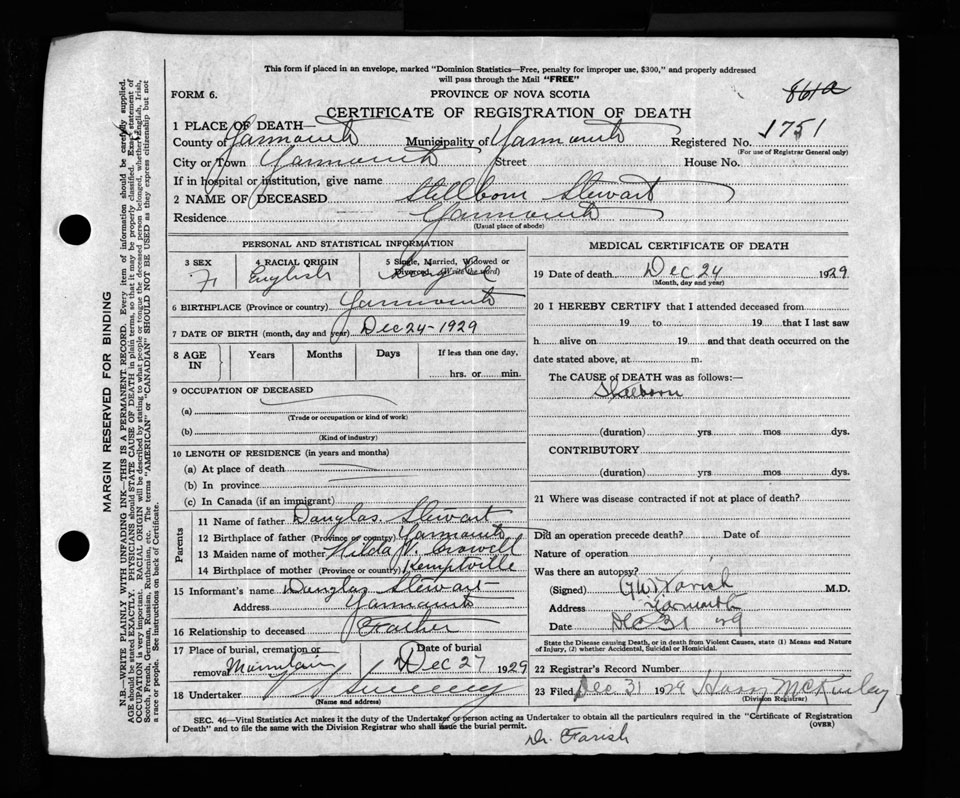 This form if placed in an envelope, marked "Dominion Statistics—Free, penalty for improper use, $300," and properly addressed
will pass through the Mail "FREE"
FORM 6. PROVINCE OF NOVA SCOTIA 861a
CERTIFICATE OF REGISTRATION OF DEATH
1 PLACE OF DEATH—
County of Yarmouth Municipality of Yarmouth Registered No. 1751
(For use of Registrar General only)
City or Town Yarmouth Street House No.
If in hospital or institution, give name
2 NAME OF DECEASED Stillborn Stewart
Residence Yarmouth
(Usual place of abode)
PERSONAL AND STATISTICAL INFORMATION
3 SEX 4 RACIAL ORIGIN 5 Single, Married, Widowed or Divorced (Write the word)
F English Single
6 BIRTHPLACE (Province or country) Yarmouth
7 DATE OF BIRTH (month, day and year) Dec 24-1929
8 AGE IN Years Months Days If less than one day,
hrs. or min.
9 OCCUPATION OF DECEASED
(a)
(Trade or occupation or kind of work)
(b)
(Kind of industry)
10 LENGTH OF RESIDENCE (in years and months)
(a) At place of death
(b) In province
(c) In Canada (if an immigrant)
Parents
11 Name of father Douglas Stewart
12 Birthplace of father (Province or country) Yarmouth
13 Maiden name of mother Hilda V. Crowell
14 Birthplace of mother (Province or country) Kemptville
15 Informant's name Douglas Stewart
Address Yarmouth
16 Relationship to deceased Father
17 Place of burial, cremation or removal Mountain Date of burial Dec 27 1929
18 Undertaker Sweeny
(Name and address)
MEDICAL CERTIFICATE OF DEATH
19 Date of death Dec 24 1929
(Month, day and year)
20 I HEREBY CERTIFY that I attended deceased from
19 to 19 that I last saw
h alive on 19 and that death occurred on the
date stated above, at m.
The CAUSE OF DEATH was as follows:—
Stillborn
(duration) yrs mos dys.
CONTRIBUTORY
(duration) yrs mos dys.
21 Where was disease contracted if not at place of death?
Did an operation precede death? Date of
Nature of operation
Was there an autopsy?
(Signed) G W Farish M.D.
Address Yarmouth
Date Dec 31 29
State the Disease causing Death, or in death from Violent Causes, state (1) Means and Nature
of Injury, (2) whether Accidental, Suicidal or Homicidal.
22 Registrar's Record Number
23 Filed Dec 31 1929 Harry McKinley
(Division Registrar)
SEC. 46—Vital Statistics Act makes it the duty of the Undertaker or person acting as Undertaker to obtain all the particulars required in the "Certificate of Registration
of Death" and to file the same with the Division Registrar who shall issue the burial permit. (OVER)
Dr. Farish
MARGIN RESERVED FOR BINDING
N.B.—WRITE PLAINLY WITH UNFADING INK—THIS IS A PERMANENT RECORD. Every item of information should be carefully supplied.
AGE should be stated EXACTLY. PHYSICIANS should STATE CAUSE OF DEATH in plain terms, so that it may be properly classified. Exact statement of
OCCUPATION is very important. RACIAL ORIGIN will be described by stating to what people or tongue the deceased person belonged, whether English, Irish,
Scotch, French, German, Russian, Ruthenian, etc. The terms "AMERICAN" or "CANADIAN" SHOULD NOT BE USED as they express citizenship but not
a race or people. See instructions on back of Certificate.